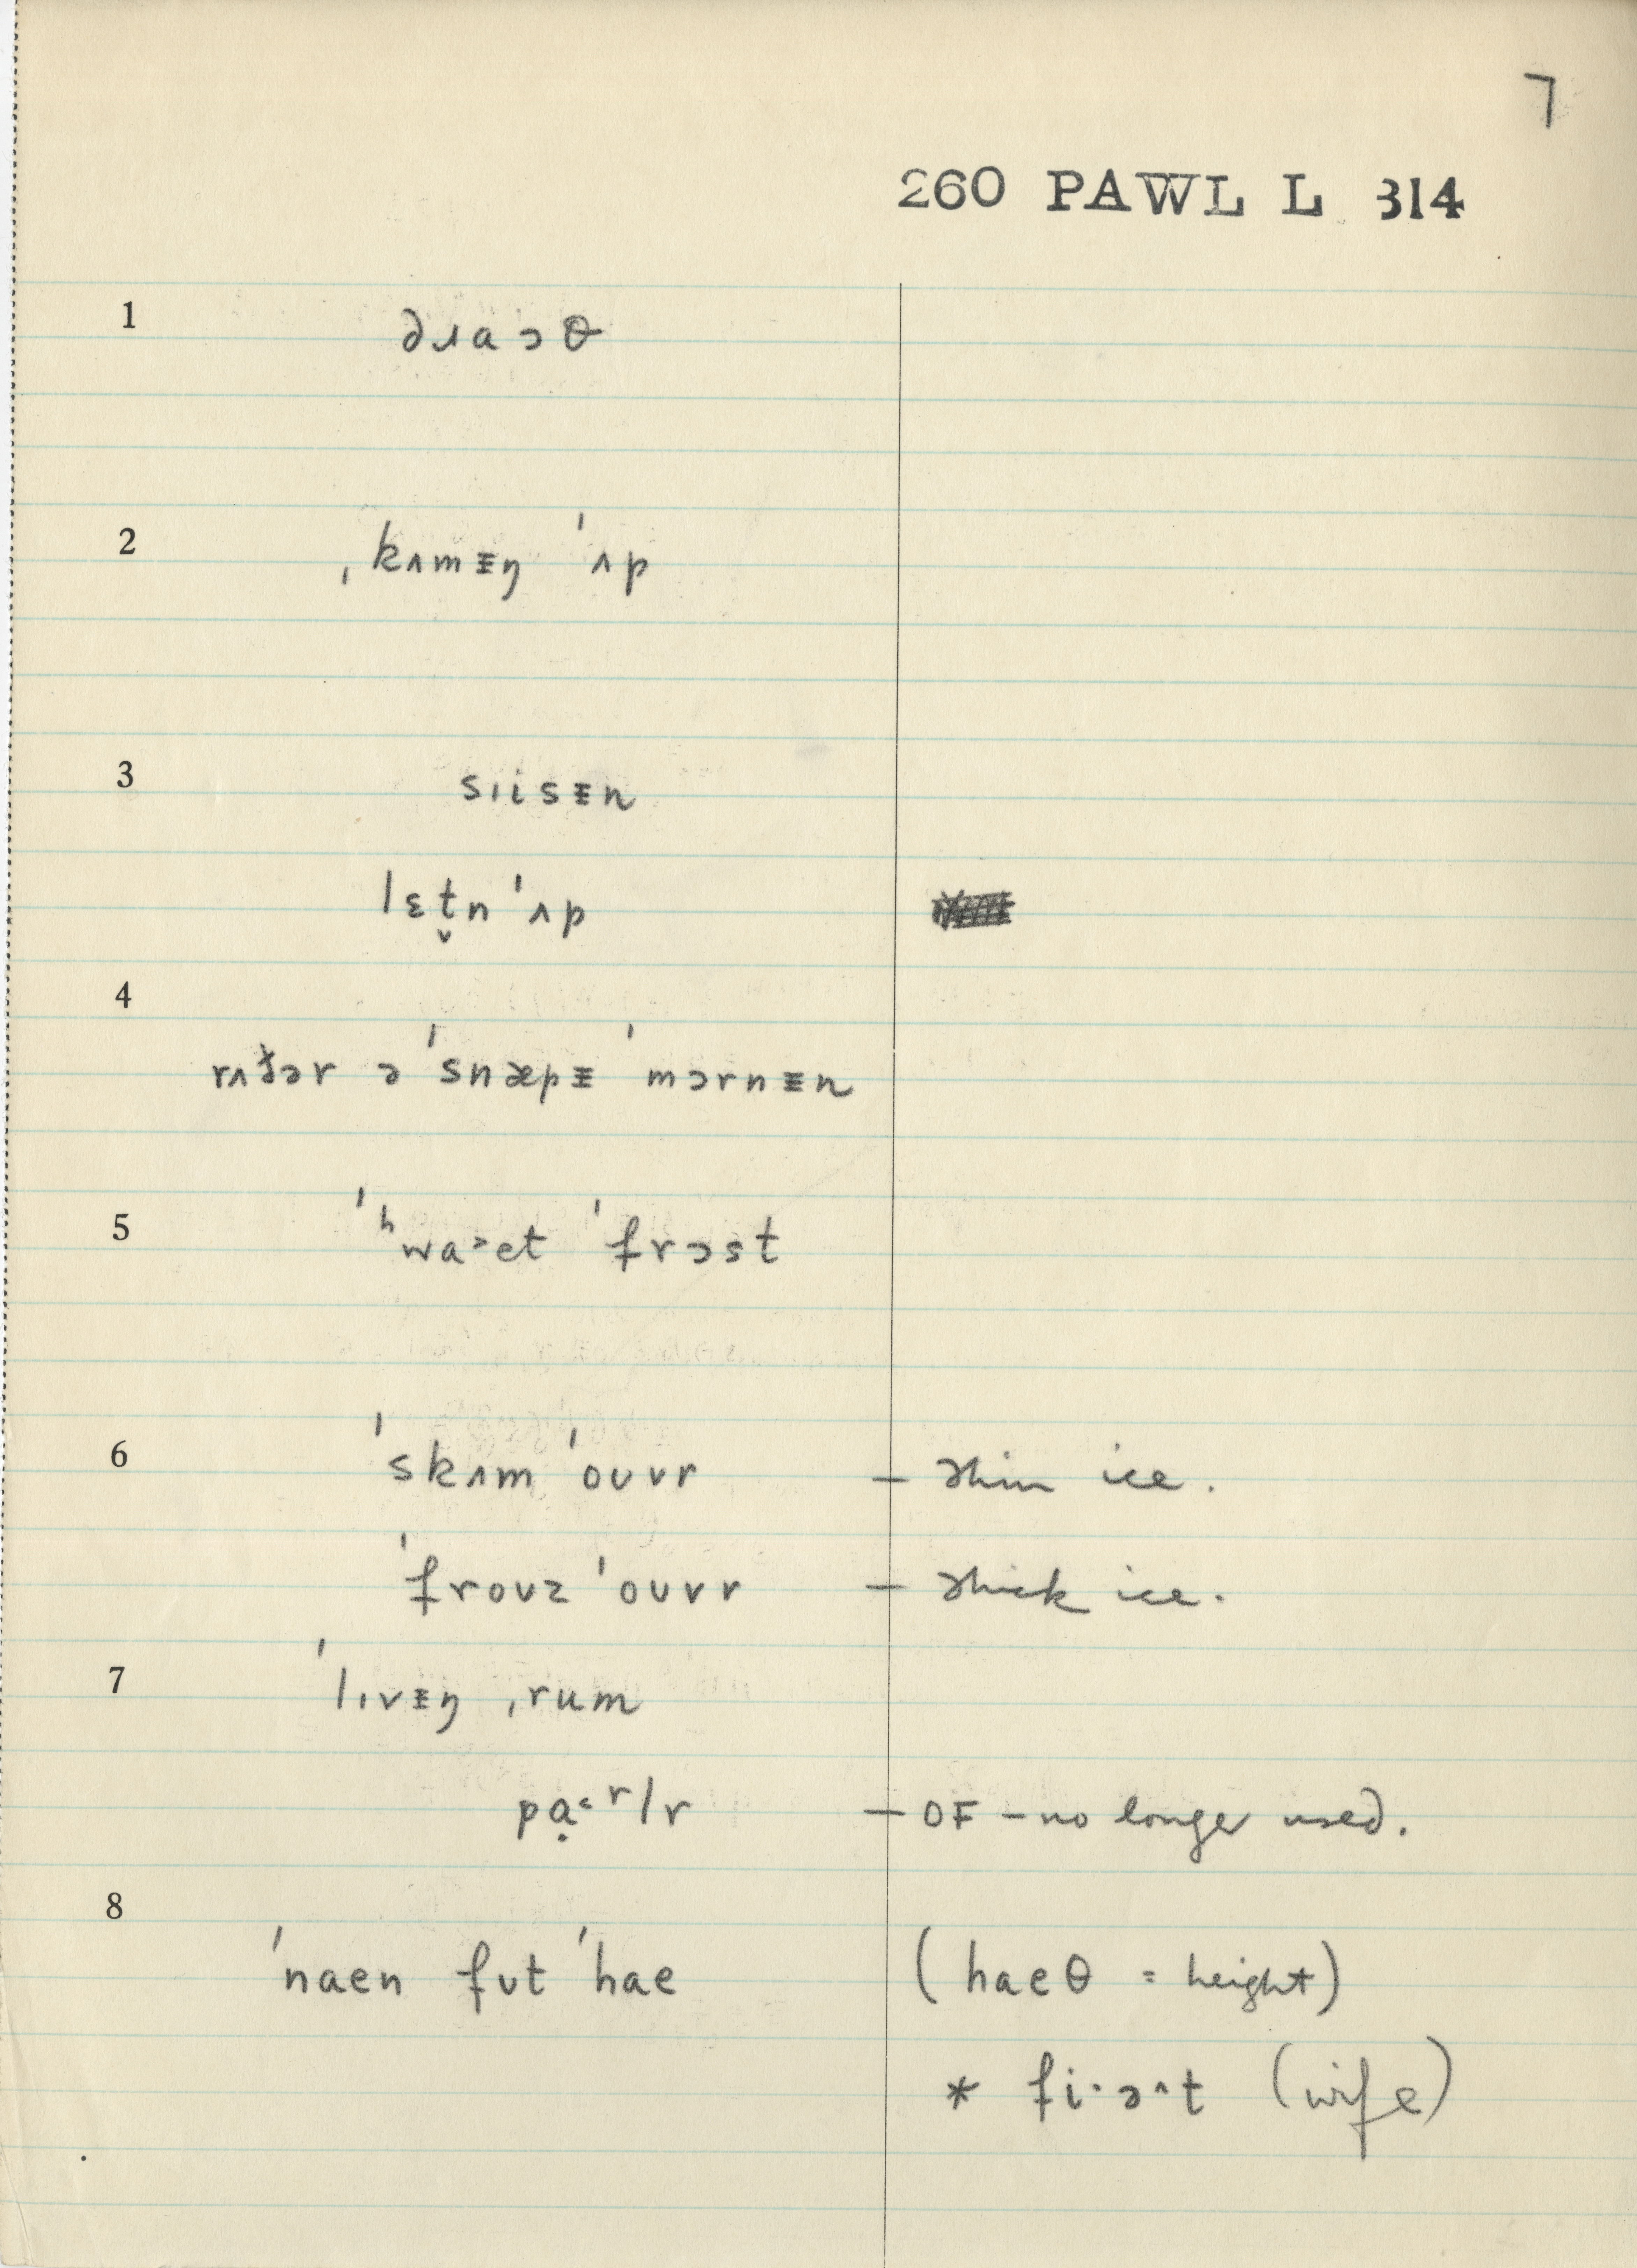 7
260 PAWL L 314
1 drɑɔθ
2 ˌkʌmᵻŋ ˈʌp
3 sɪisᵻn
lɛt̬n ˈʌp
4
rʌðər ə ˈsnæpᵻ ˈmɔrnᵻn
5 ˈʰwa˃et ˈfrɔst
6 ˈskʌm ˈoʊvr – thin ice.
ˈfroʊz ˈoʊvr – thick ice.
7 ˈlɪvᵻŋ ˌrum
pạ˂ʳlr – OF – no longer used.
8
ˈnaen fʊt ˈhae (haeθ = height)
* fi·ə^t (wife)